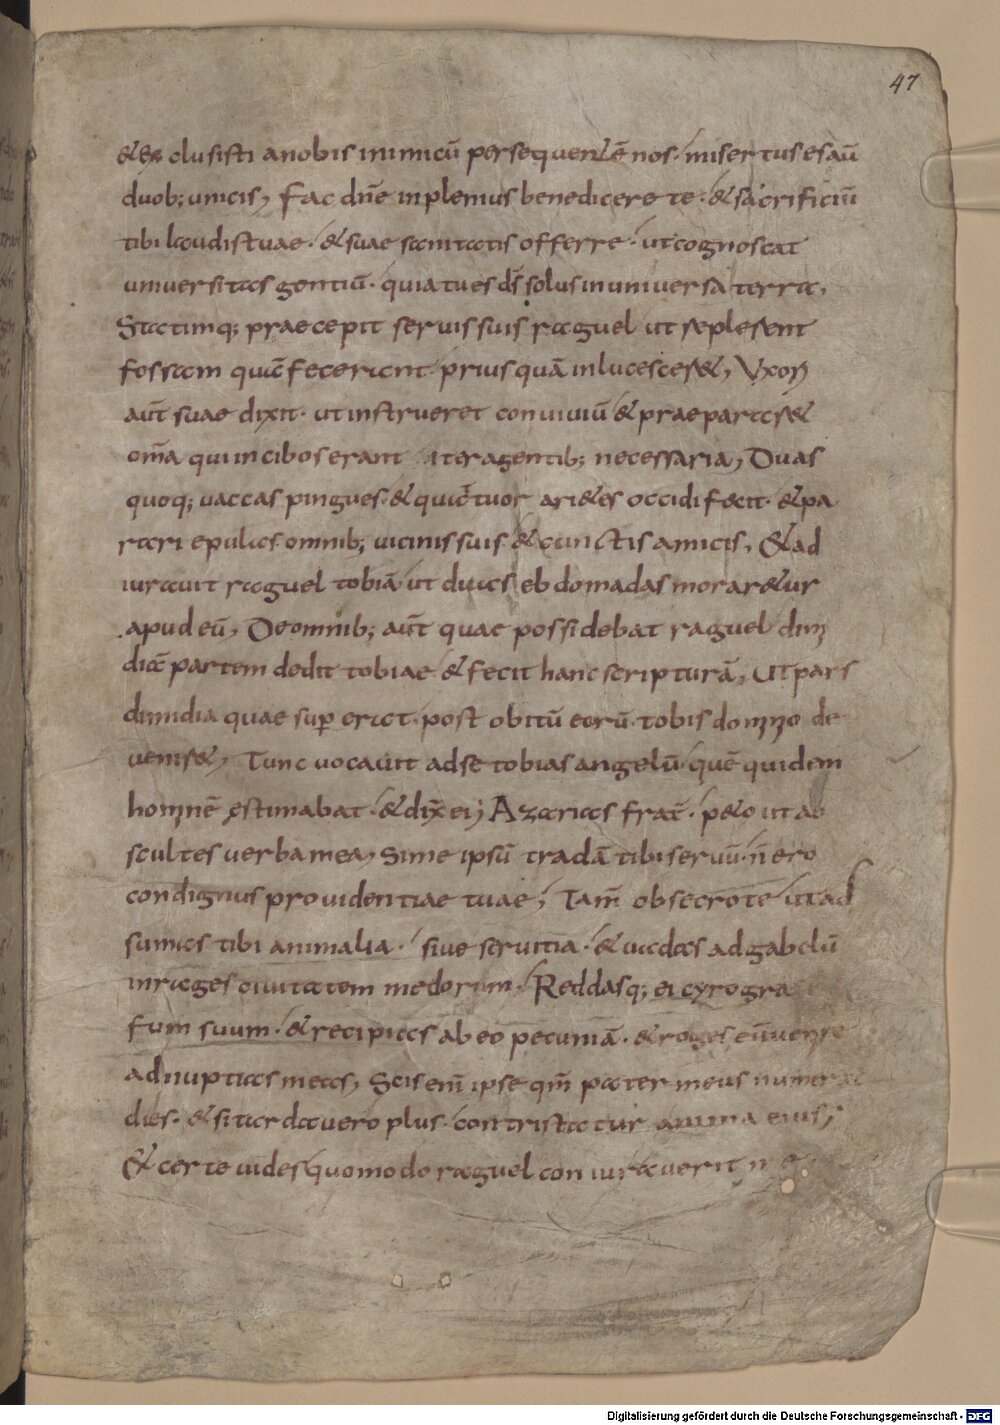 47
&exclusisti anobis inimicū persequentē nos. misertus es aū
duob; unicis, Fac dn̄e inplenius benedicere te. & sacrificiū
tibi laudis tuae. & suae sanitatis offerre. ut cognoscat
uniuersitas gentiū. quia tu es d̄s solus in uniuersa terra,
Statimq; praecepit seruis suis raguel ut seplesent
fossam quā fecerant prius quā inlucesces&, Uxori
aūt suae dixit. ut instrueret conuiuiū & praepares&
om̄a qui in cibos erant iteragentib; necessaria, Duas
quoq; uaccas pingues. & quattuor ari&es occidi fecit. & pa
rari epulas omnib; uicinis suis. & cunctis amicis, & ad
iurauit raguel tobiā ut duas ebdomadas morar&ur
apud eū, De omnib; aūt quae possidebat raguel dim
diā partem dedit tobiae & fecit hanc scripturā, Ut pars
dimidia quae sup̄ erat. post obitū eorū. tobis domino de
uenis&, Tunc uocauit ad se tobias angelū. quē quidem
hominē ęstimabat. & dix̄ ei; Azarias frat̄. p&o ut ab
scultes uerba mea, Si me ipsū tradā tibi seruū. n̄ ero
condignus prouidentiae tuae; Tam̄ obsecro te ut ad
sumas tibi animalia. siue seruitia. & uadas ad gabelū
in rages ciuitatem medorum. Reddasq; ei cyrogra
fum suum. & recipias ab eo pecuniā. & roges eū uenire
ad nuptias meas, Scis enī ipse qm̄ pater meus numerat
dies. & si tardauero plus. contristatur anima eius;
& certe uides quomodo raguel coniurauerit me
Digitalisierung gefördert durch die Deutsche Forschungsgemeinschaft - DFG